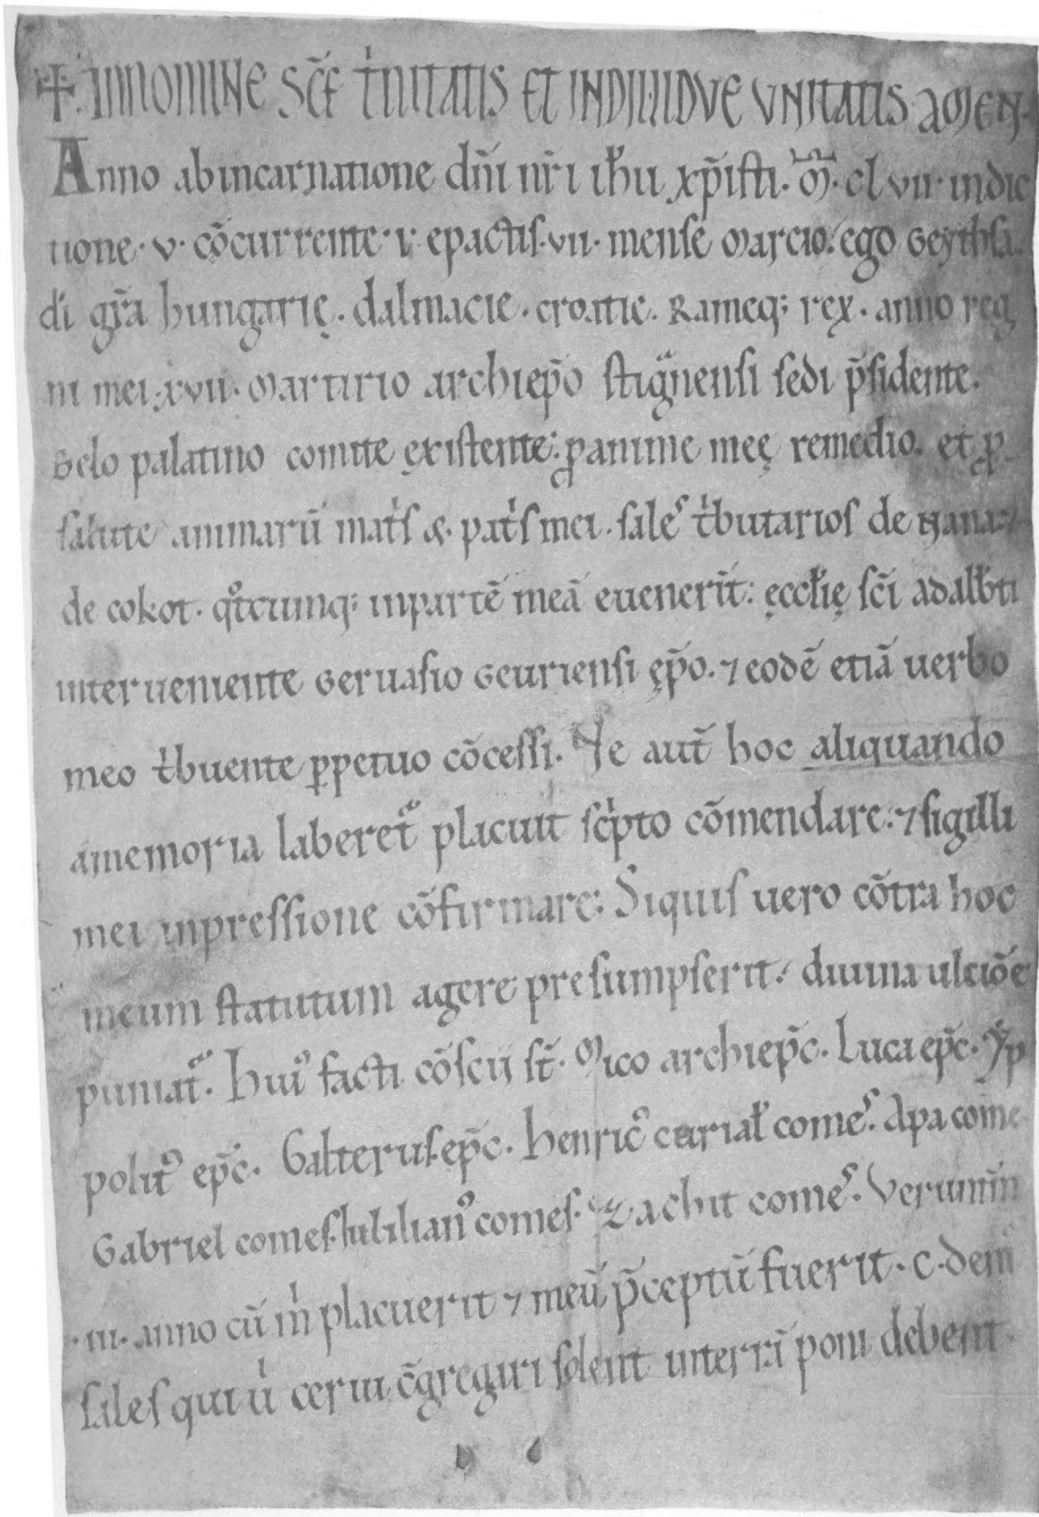 ✝ INNOMINE SC̄E TͥNITATIS ET INDIUIDVE VNITATIS AMEN.
Anno abincarnatione dn̄i nr̄i ih̄u xp̄isti. M̄. cl vii. indic
tione. v. cōcurrente. i. epactis. vii. mense Marcio. ego Geythsa.
dī gr̄a hungarię. dalmacie. croatie. Rameq; rex. anno reg
ni mei. xvii. Martirio archiep̄o strigͣnensi sedi p̄sidente.
Belo palatino comite ęxistente: ꝓ anime meę remedio. et ꝓ
salute animarū matͥs &. patͥs mei. sales tͥbutarios de Nana: ⁊
de cokot. qͦtcumq; inpartē meā euenerīt: ęccl̄ię sc̄i adalb̄ti
interueniente Geruasio Geuriensi ęp̄o. ⁊ eodē etiā uerbo
meo tͥbuente ꝑpetuo cōcessi. Ne aut̄ hoc aliquando
amemoria laberet᷑ placuit scͥpto cōmendare: ⁊ sigilli
mei inpressione cōfirmare: Siquis uero cōtra hoc
meum statutum agere presumpserit: diuina ulciōe
puniat᷑. Huiꝰ facti cōscii st̄. Mico archiep̄c. Luca ep̄c. Yp
politꝰ ep̄c. Galterus.ep̄c. Henricꝰ curial̄ comes. Apa come
Gabriel comes. Iulilianꝰ comes. Zachit comes. Verumt̄n
.iii. anno cū mͥ placuerit ⁊ meū p̄ceptū fuerit. c. deni
sales qui uͥ cerui c̄gregari solent interrā poni debent.